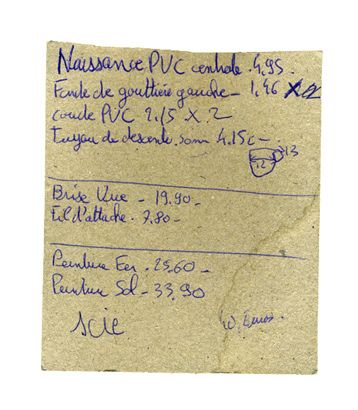 Naissance PVC centrale . 4,95.
Fonde de gouttière gauche - 1,46 X 02
coude PVC 2,15 X 2
Tuyau de descente 4,15 -
13
12
Brise Vue - 19,90 -
Fil d'attache . 7,80 -
Peinture Fer . 25,60 -
Peinture Sol - 33,90
scie